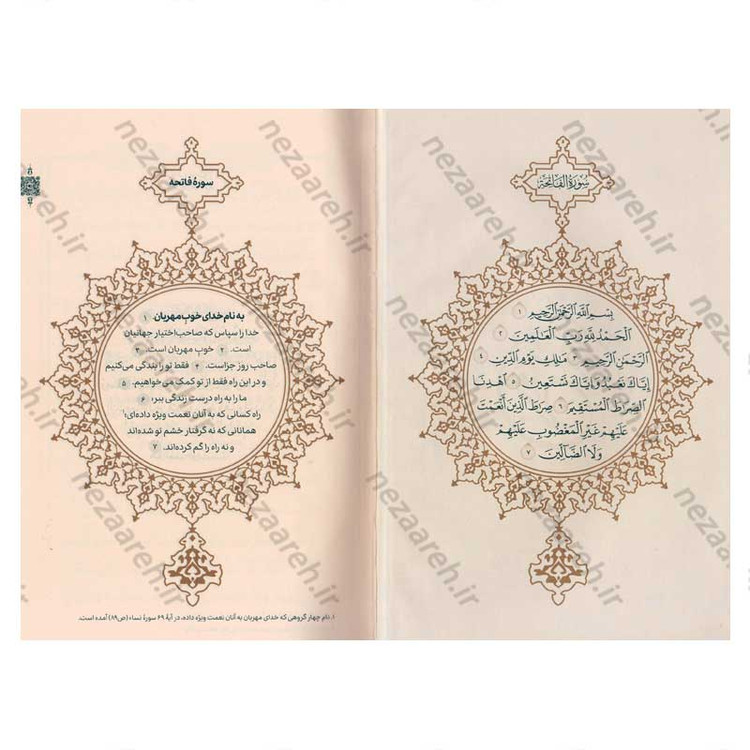 سُورَةُ الفَاتِحَة
بِسْمِ اللَّهِ الرَّحْمَٰنِ الرَّحِيمِ ۱
الْحَمْدُ لِلَّهِ رَبِّ الْعَالَمِينَ ۲
الرَّحْمَٰنِ الرَّحِيمِ ۳ مَالِكِ يَوْمِ الدِّينِ ۴
إِيَّاكَ نَعْبُدُ وَإِيَّاكَ نَسْتَعِينُ ۵ اهْدِنَا
الصِّرَاطَ الْمُسْتَقِيمَ ۶ صِرَاطَ الَّذِينَ أَنْعَمْتَ
عَلَيْهِمْ غَيْرِ الْمَغْضُوبِ عَلَيْهِمْ
وَلَا الضَّالِّينَ ۷
سورهٔ فاتحه
به نام خدای خوبِ مهربان ۱
خدا را سپاس که صاحب‌اختیار جهانیان
است. ۲ خوبِ مهربان است. ۳
صاحب روز جزاست. ۴ فقط تو را بندگی می‌کنیم
و در این راه فقط از تو کمک می‌خواهیم. ۵
ما را به راه درست زندگی ببر، ۶
راه کسانی که به آنان نعمت ویژه داده‌ای؛۱
همانانی که نه گرفتار خشم تو شده‌اند
و نه راه را گم کرده‌اند. ۷
۱. نام چهار گروهی که خدای مهربان به آنان نعمت ویژه داده، در آیهٔ ۶۹ سورهٔ نساء (ص۸۹) آمده است.
nezaareh.ir
nezaareh.ir
nezaareh.ir
nezaareh.ir
nezaareh.ir
nezaareh.ir